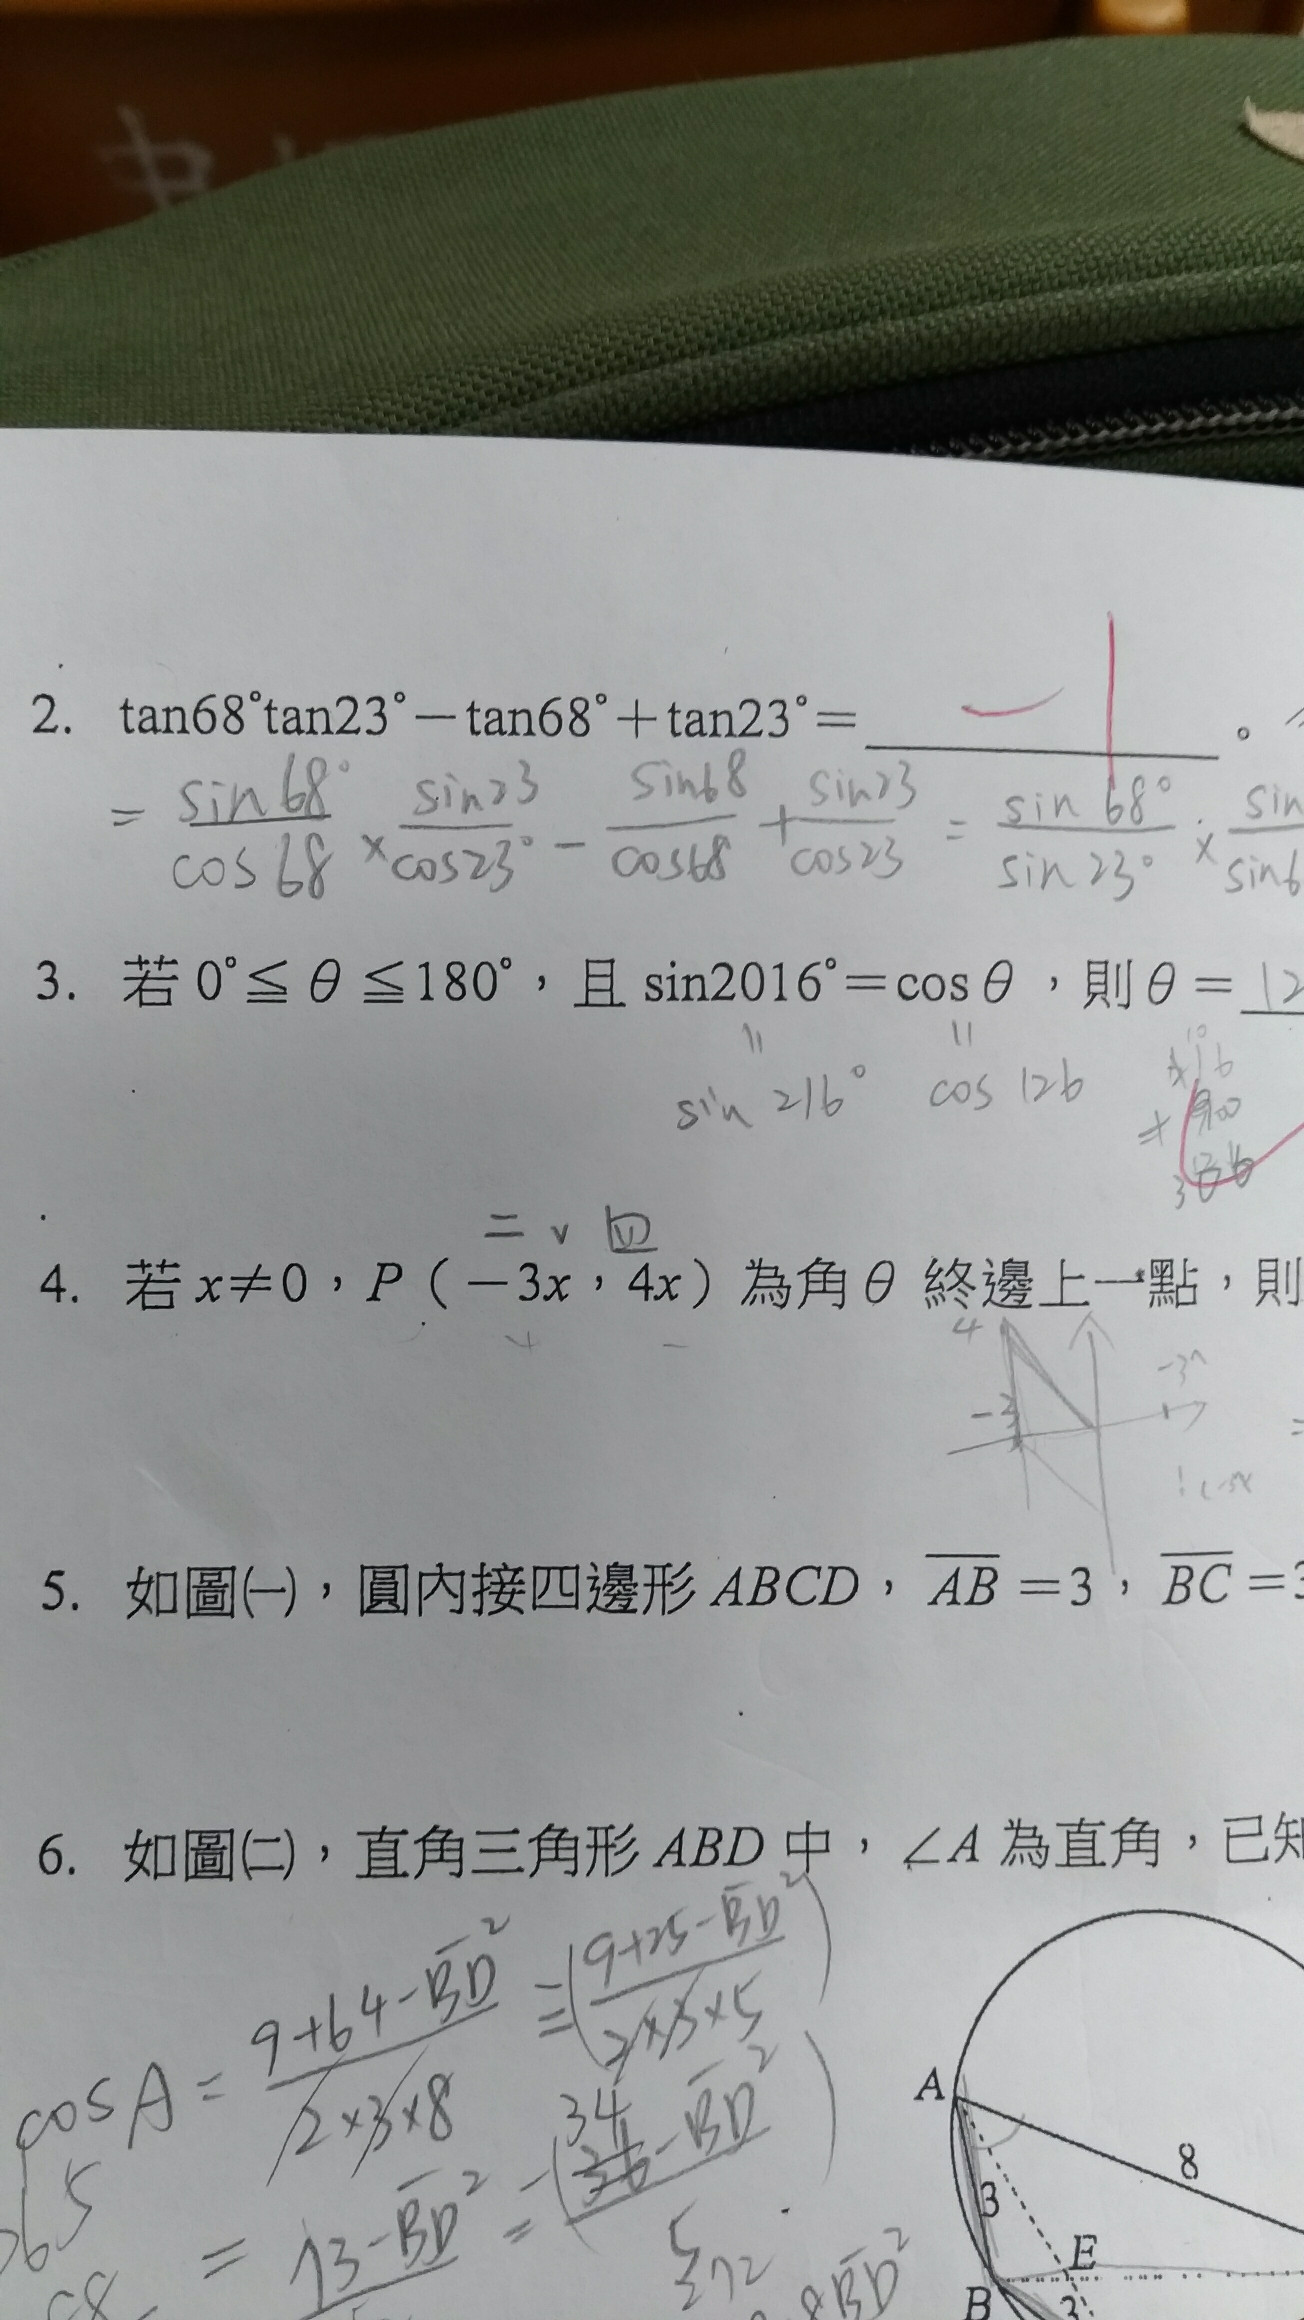 中
2. tan68°tan23°－tan68°＋tan23°＝ －1 。
= sin68°/cos68 × sin23/cos23° − sin68/cos68 + sin23/cos23 = sin68°/sin23° × sin
3. 若 0°≦θ≦180°，且 sin2016°＝cosθ，則θ＝12
sin 216° cos 126
二、四
4. 若 x≠0，P（－3x，4x）為角θ 終邊上一點，則
+ −
4
-3
5. 如圖㈠，圓內接四邊形 ABCD，AB＝3，BC＝3
6. 如圖㈡，直角三角形 ABD 中，∠A 為直角，已知
cosA = (9+64−BD²)/(2×3×8) = −(9+25−BD²)/(2×3×5)
= (73−BD²) = −(34−BD²)/5
A 8
3
E
B 3